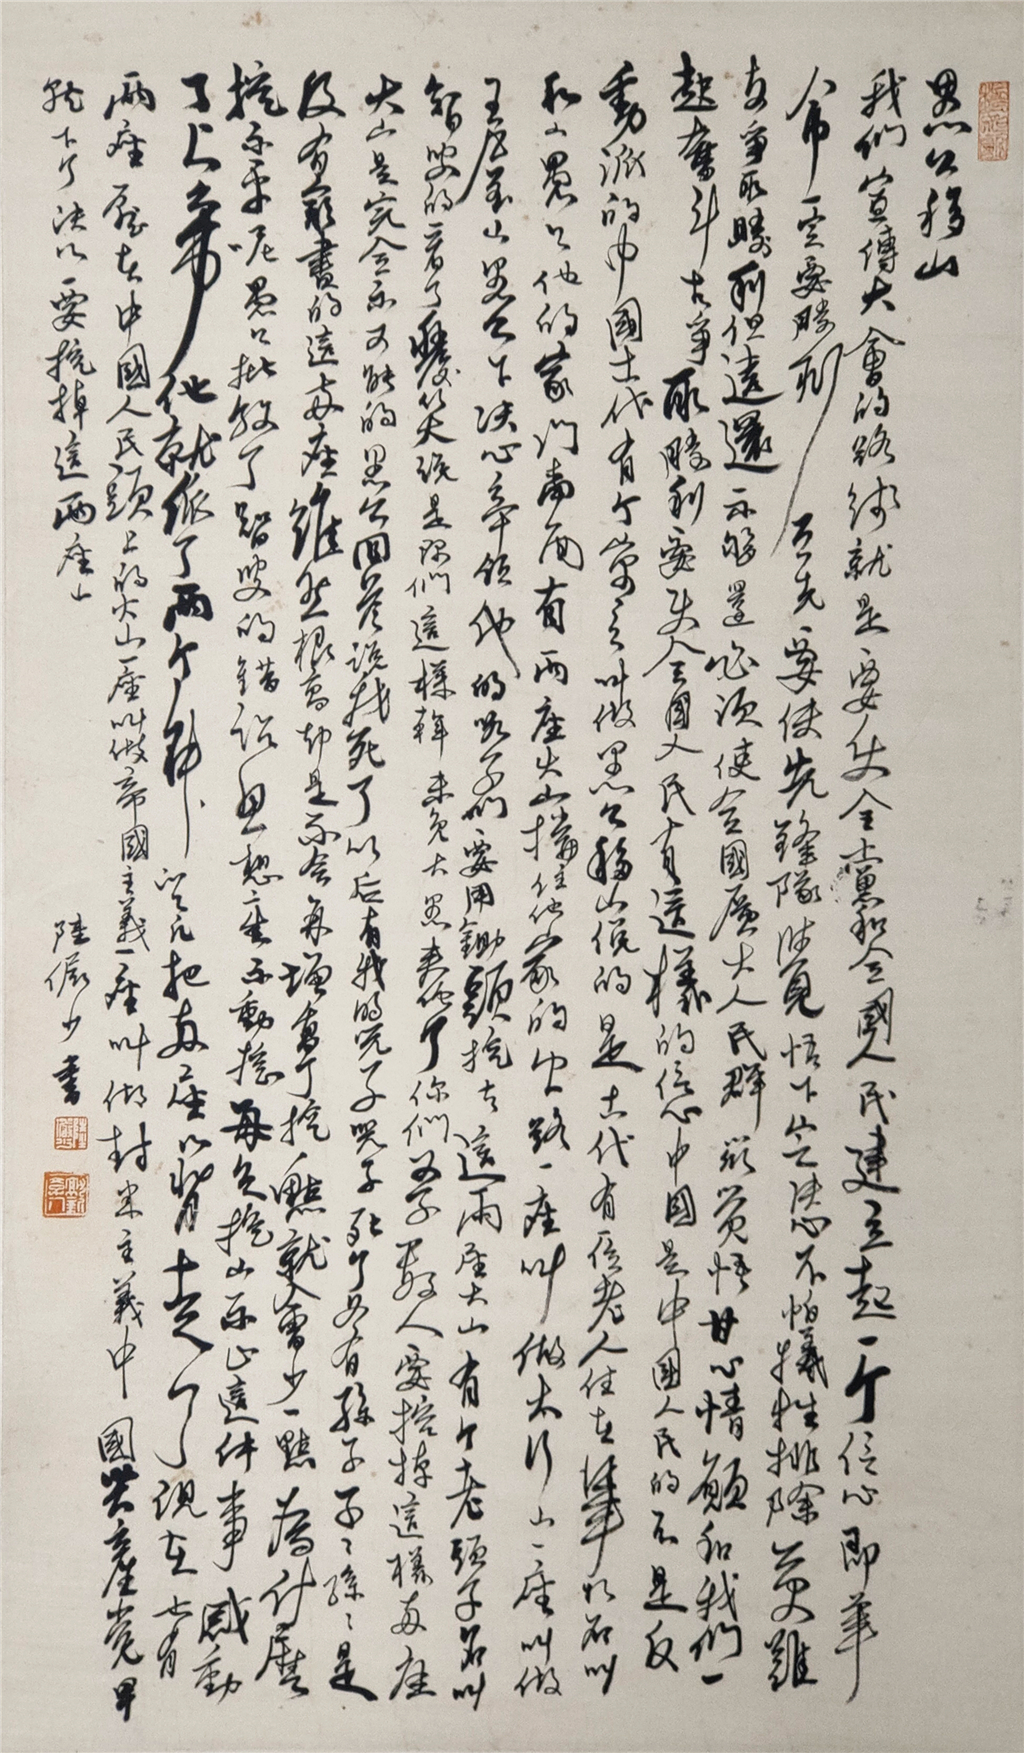 愚公移山
我們宣傳大會的路綫就是要使全黨和全國人民建立起一个信心即革
命一定要勝利首先要使先鋒隊覺悟下定決心不怕犧牲排除萬難
去爭取勝利但這還不够還必須使全國廣大人民群衆覺悟甘心情願和我們一
起奮斗去爭取勝利要使全國人民有這樣的信心中国是中國人民的不是反
動派的中國古代有个寓言叫做愚公移山説的是古代有一位老人住在華北名叫
北山愚公他的家門南面有兩座大山擋住他家的出路一座叫做太行山一座叫做
王屋山愚公下決心率領他的兒子們要用鋤頭挖去這兩座大山有个老頭子名叫
智叟的看了發笑説是你們這樣幹未免太愚蠢了你們父子數人要挖掉這樣兩座
大山是完全不可能的愚公回答説我死了以后有我的兒子兒子死了又有孫子子子孫孫是
没有窮盡的這兩座山雖然很高却是不會再增高了挖一點就會少一點為什麽
挖不平呢愚公批駁了智叟的錯誤思想毫不動摇每天挖山不止這件事感動
了上帝他就派了兩个神仙下凡把兩座山背走了現在也有
兩座壓在中國人民頭上的大山一座叫做帝國主義一座叫做封建主義中國共産党早
就下了決心要挖掉這兩座山
陸儼少書